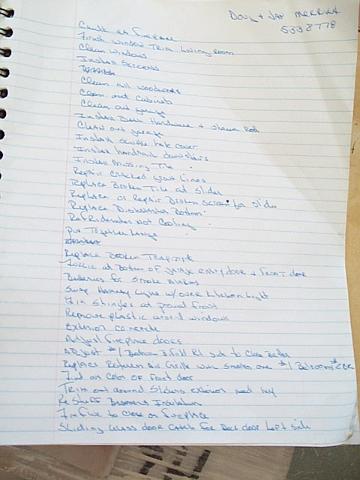 Doug + Jan
5338778
Caulk at fireplace
Finish window trim living room
Clean windows
Install screens
Clean all woodwork
Clean out cabinets
Clean out garage
Install Bath Hardware + shower Rod
Clean out garage
Install handrail downstairs
Install missing tile
Repair cracked grout lines
Replace Broken Tile at slider
Replace or Repair Broken screen for slider
Replace Dishwasher Bottom
Refrigerator Not Cooling
Put Together Range
Replace Broken
at Bottom of garage entry door + front door
Batteries for smoke
Swap Hallway Light w/over kitchen light
Fix shingles at
Remove plastic around windows
Exterior concrete
Adjust fireplace doors
Adjust #1 Bedroom Bifold Rt side to close Better
Replace Return Air Grille with smaller one #1 Bedroom
2nd on color of front door
Trim out around
Restuff Basement Insulation
to close on fireplace
Sliding Glass door Catch for Back door Left side